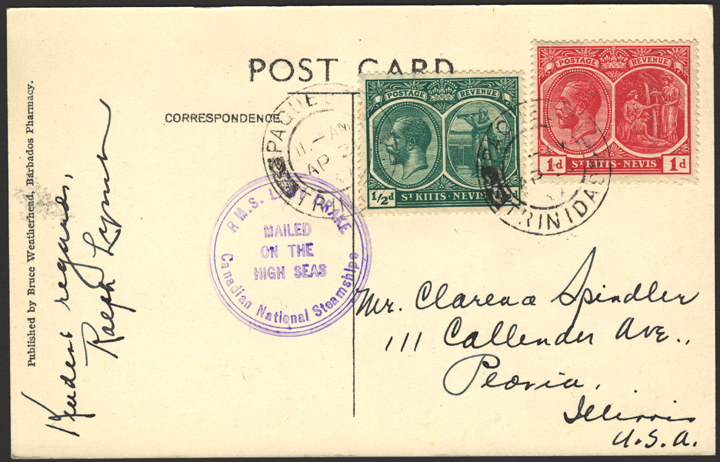 Published by Bruce Weatherhead, Barbados Pharmacy.
POST CARD
CORRESPONDENCE
Kindest regards,
Ralph
POSTAGE REVENUE
1/2d ST KITTS-NEVIS
POSTAGE REVENUE
1d ST KITTS-NEVIS 1d
11-AM
AP
TRINIDAD
R.M.S. DRAKE
MAILED
ON THE
HIGH SEAS
Canadian National Steamships
Mr. Clarence Spindler
111 Callender Ave.,
Peoria,
Illinois
U.S.A.